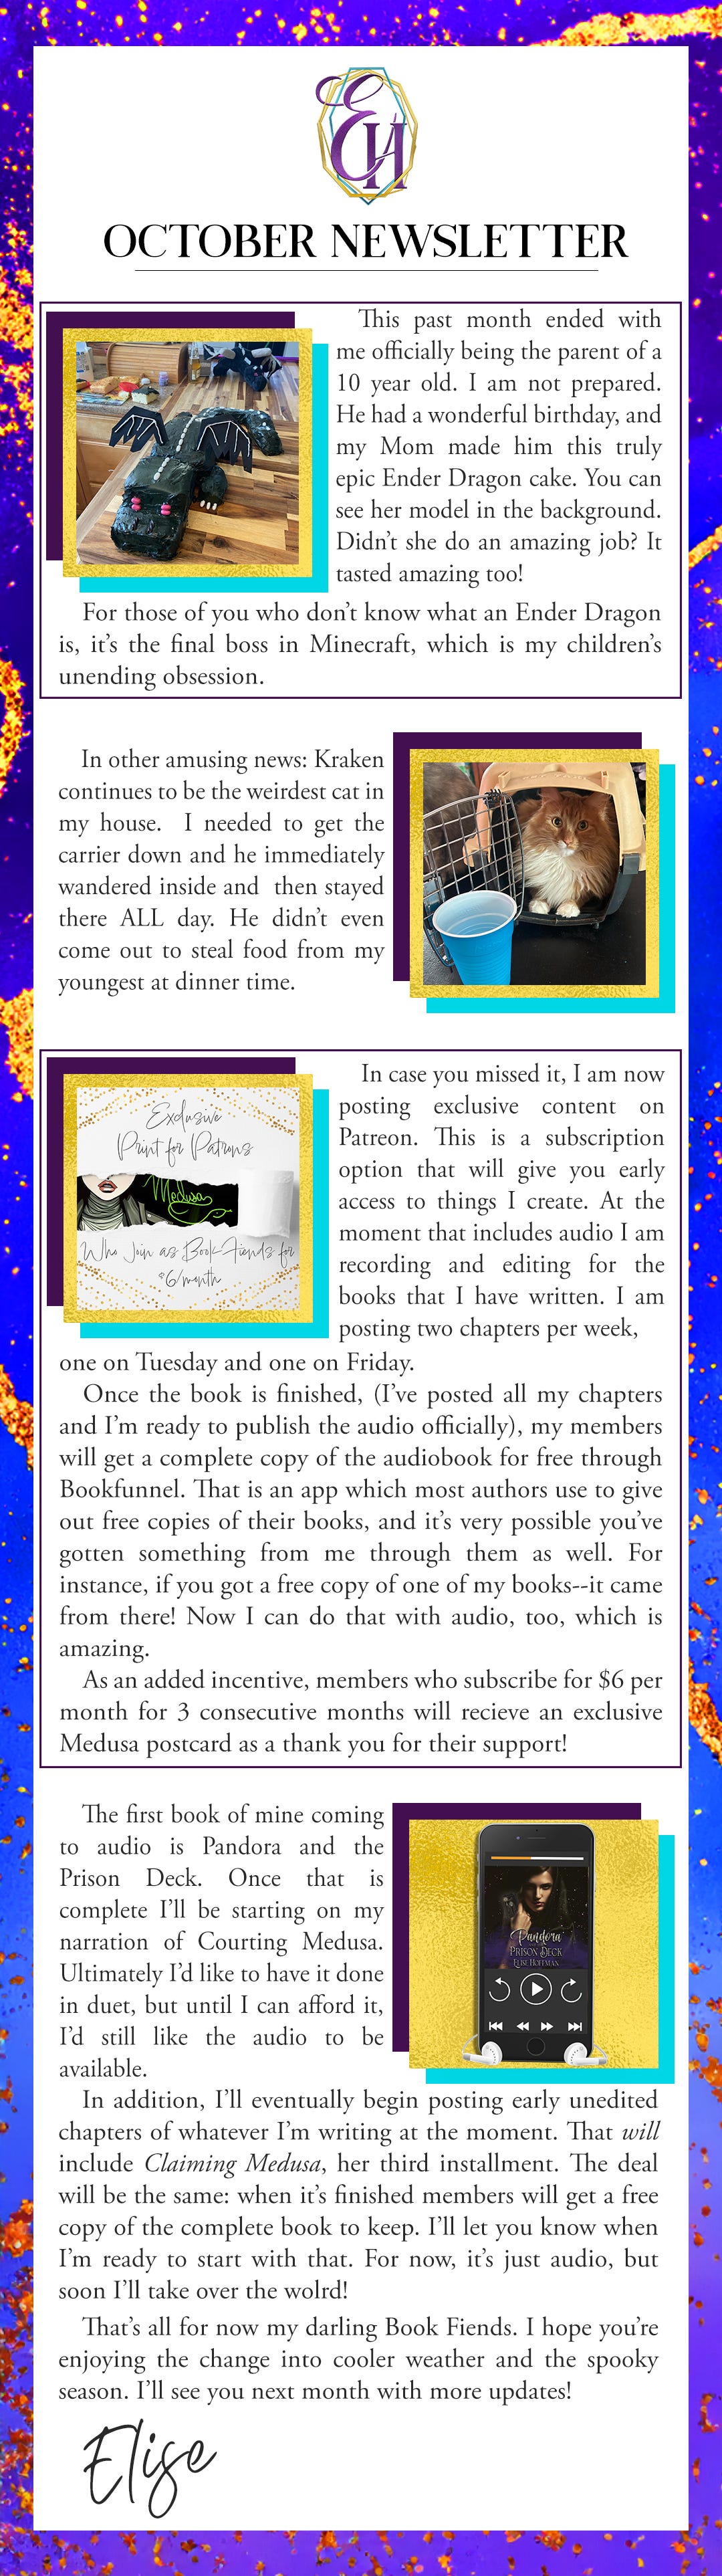 EH
OCTOBER NEWSLETTER
This past month ended with
me officially being the parent of a
10 year old. I am not prepared.
He had a wonderful birthday, and
my Mom made him this truly
epic Ender Dragon cake. You can
see her model in the background.
Didn't she do an amazing job? It
tasted amazing too!
For those of you who don't know what an Ender Dragon
is, it's the final boss in Minecraft, which is my children's
unending obsession.
In other amusing news: Kraken
continues to be the weirdest cat in
my house. I needed to get the
carrier down and he immediately
wandered inside and then stayed
there ALL day. He didn't even
come out to steal food from my
youngest at dinner time.
Exclusive
Print for Patrons
Medusa
Who Join as Book-Fiends for
$6/month
In case you missed it, I am now
posting exclusive content on
Patreon. This is a subscription
option that will give you early
access to things I create. At the
moment that includes audio I am
recording and editing for the
books that I have written. I am
posting two chapters per week,
one on Tuesday and one on Friday.
Once the book is finished, (I've posted all my chapters
and I'm ready to publish the audio officially), my members
will get a complete copy of the audiobook for free through
Bookfunnel. That is an app which most authors use to give
out free copies of their books, and it's very possible you've
gotten something from me through them as well. For
instance, if you got a free copy of one of my books--it came
from there! Now I can do that with audio, too, which is
amazing.
As an added incentive, members who subscribe for $6 per
month for 3 consecutive months will recieve an exclusive
Medusa postcard as a thank you for their support!
The first book of mine coming
to audio is Pandora and the
Prison Deck. Once that is
complete I'll be starting on my
narration of Courting Medusa.
Ultimately I'd like to have it done
in duet, but until I can afford it,
I'd still like the audio to be
available.
Pandora
PRISON DECK
ELISE HOFFMAN
In addition, I'll eventually begin posting early unedited
chapters of whatever I'm writing at the moment. That will
include Claiming Medusa, her third installment. The deal
will be the same: when it's finished members will get a free
copy of the complete book to keep. I'll let you know when
I'm ready to start with that. For now, it's just audio, but
soon I'll take over the wolrd!
That's all for now my darling Book Fiends. I hope you're
enjoying the change into cooler weather and the spooky
season. I'll see you next month with more updates!
Elise